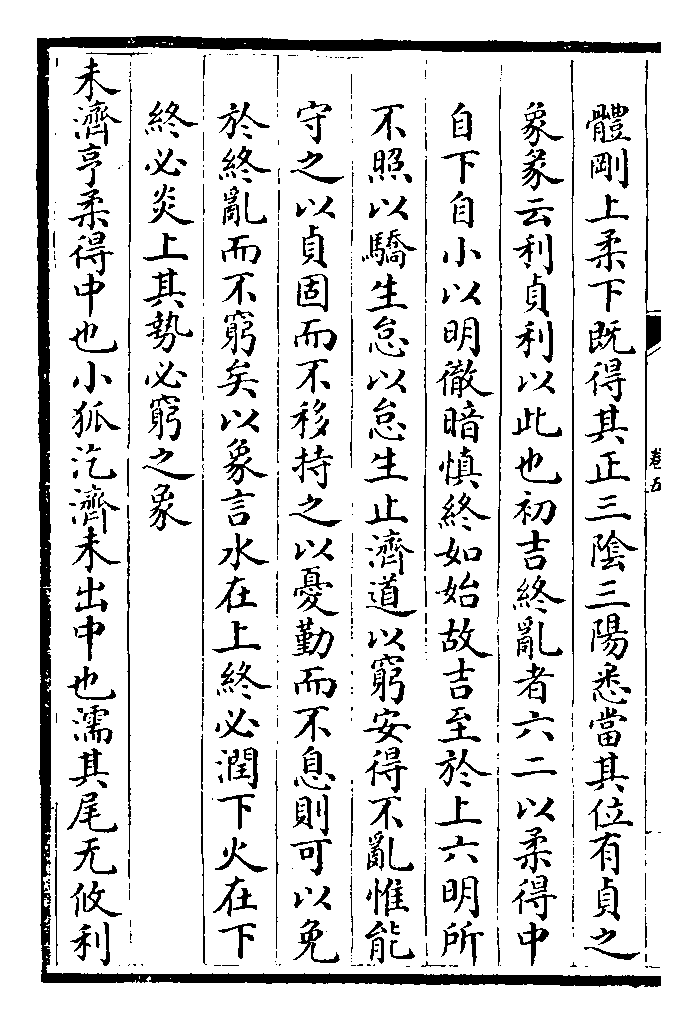 體剛上柔下既得其正三陰三陽悉當其位有貞之
象彖云利貞利以此也初吉終亂者六二以柔得中
自下自小以明徹暗慎終如始故吉至於上六明所
不照以驕生怠以怠生止濟道以窮安得不亂惟能
守之以貞固而不移持之以憂勤而不息則可以免
於終亂而不窮矣以象言水在上終必潤下火在下
終必炎上其勢必窮之象
未濟亨柔得中也小狐汔濟未出中也濡其尾无攸利
卷五